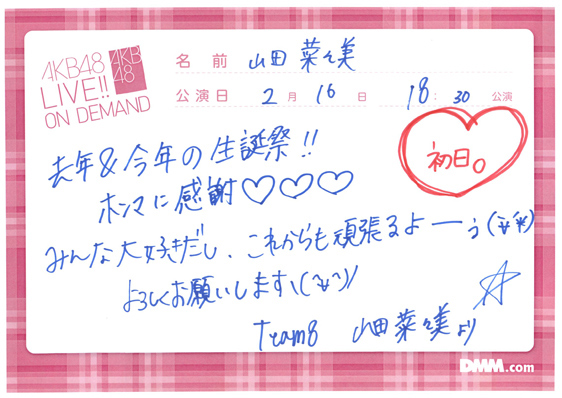 AKB48
LIVE!!
ON DEMAND
AKB
48
名前 山田 菜々美
公演日 2月16日 18:30 公演
初日。
去年&今年の生誕祭!!
ホンマに感謝♡♡♡
みんな大好きだし、これからも頑張るよーう
よろしくお願いします
Team8 山田菜々美より
DMM.com